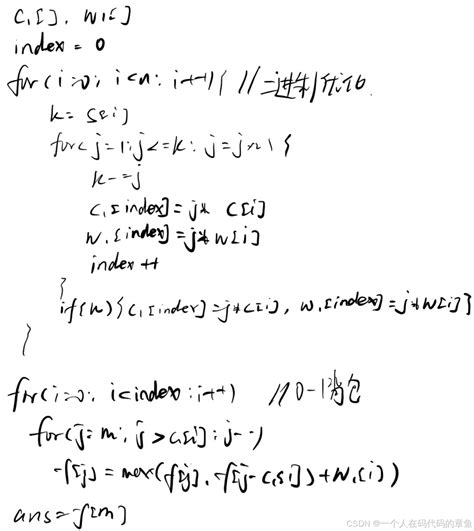 C₁[], W₁[]
index = 0
for(i=0; i<n; i++){ //二进制优化
k = s[i]
for(j=1; j<=k; j=j*2){
k-=j
C₁[index]=j* C[i]
W₁[index]=j*W[i]
index++
}
if(k){C₁[index]=j*C[i], W₁[index]=j*W[i]}
}
for(i=0; i<index; i++) //0-1背包
for(j=m; j>C₁[i]; j--)
f[j]=max(f[j], f[j-C₁[i]]+W₁[i])
ans=f[m]
CSDN @一个人在码代码的章鱼